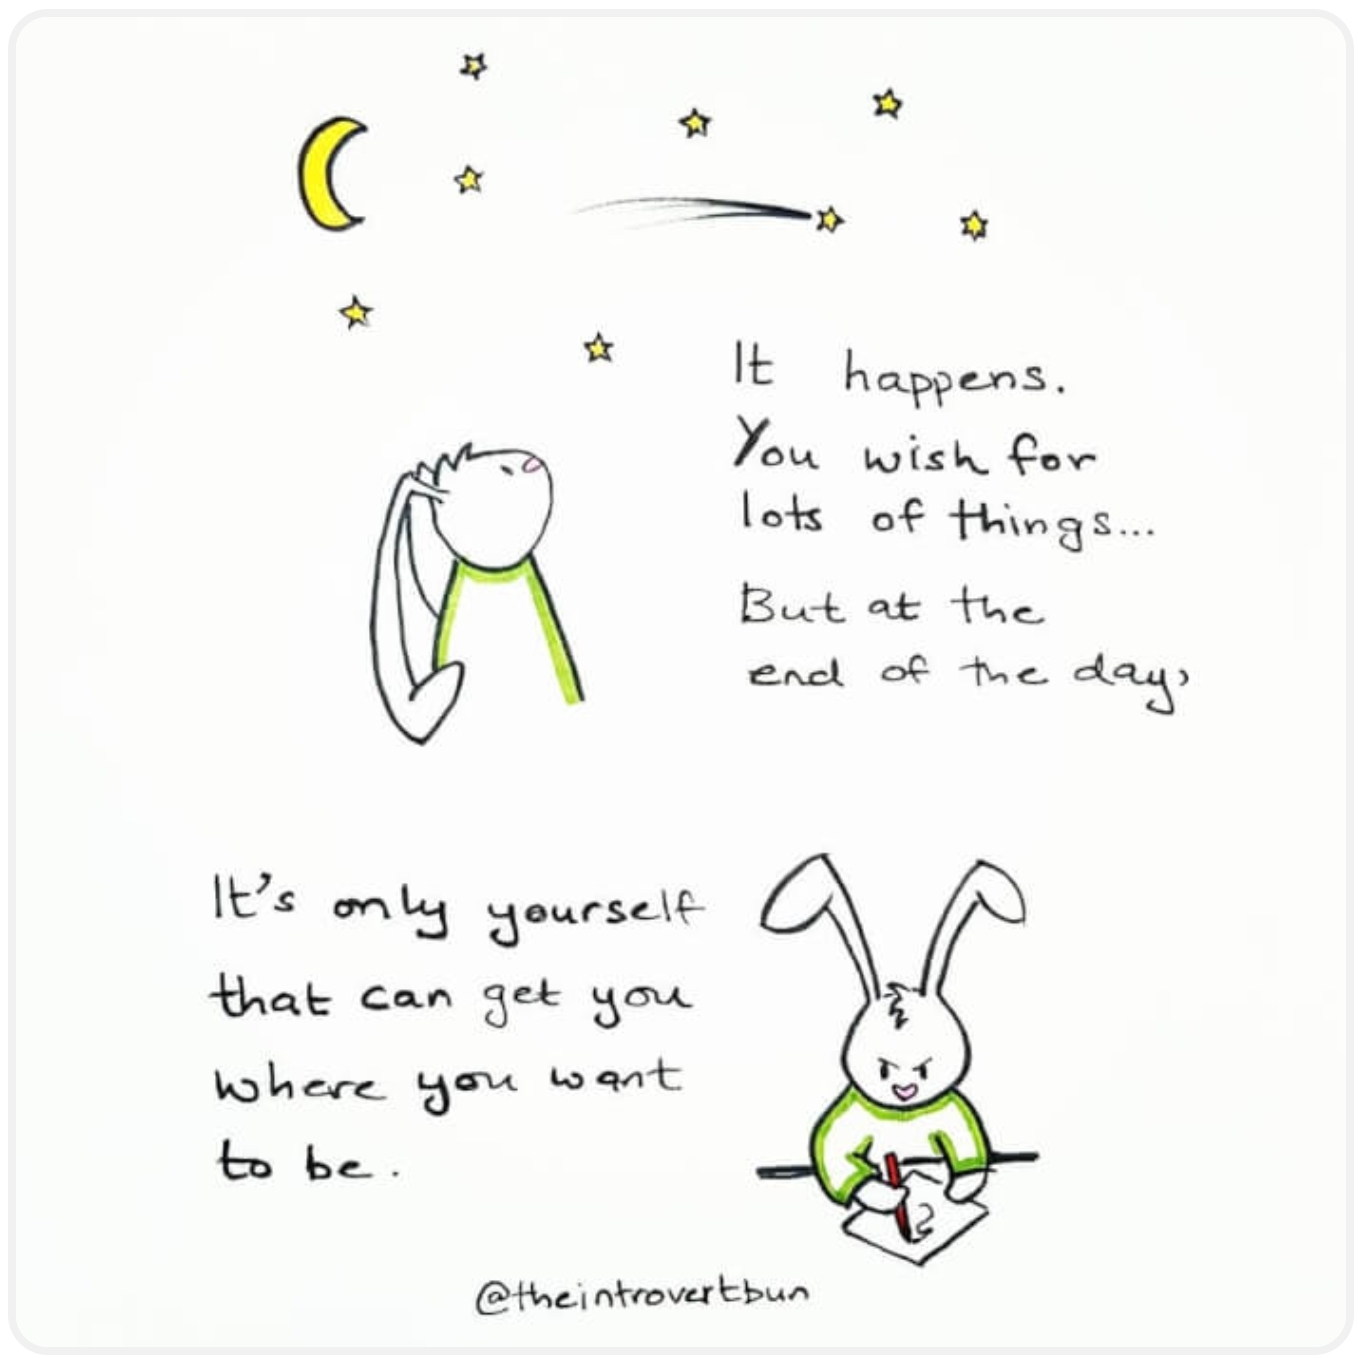 It happens.
You wish for
lots of things...
But at the
end of the day,
It's only yourself
that can get you
where you want
to be.
@theintrovertbun